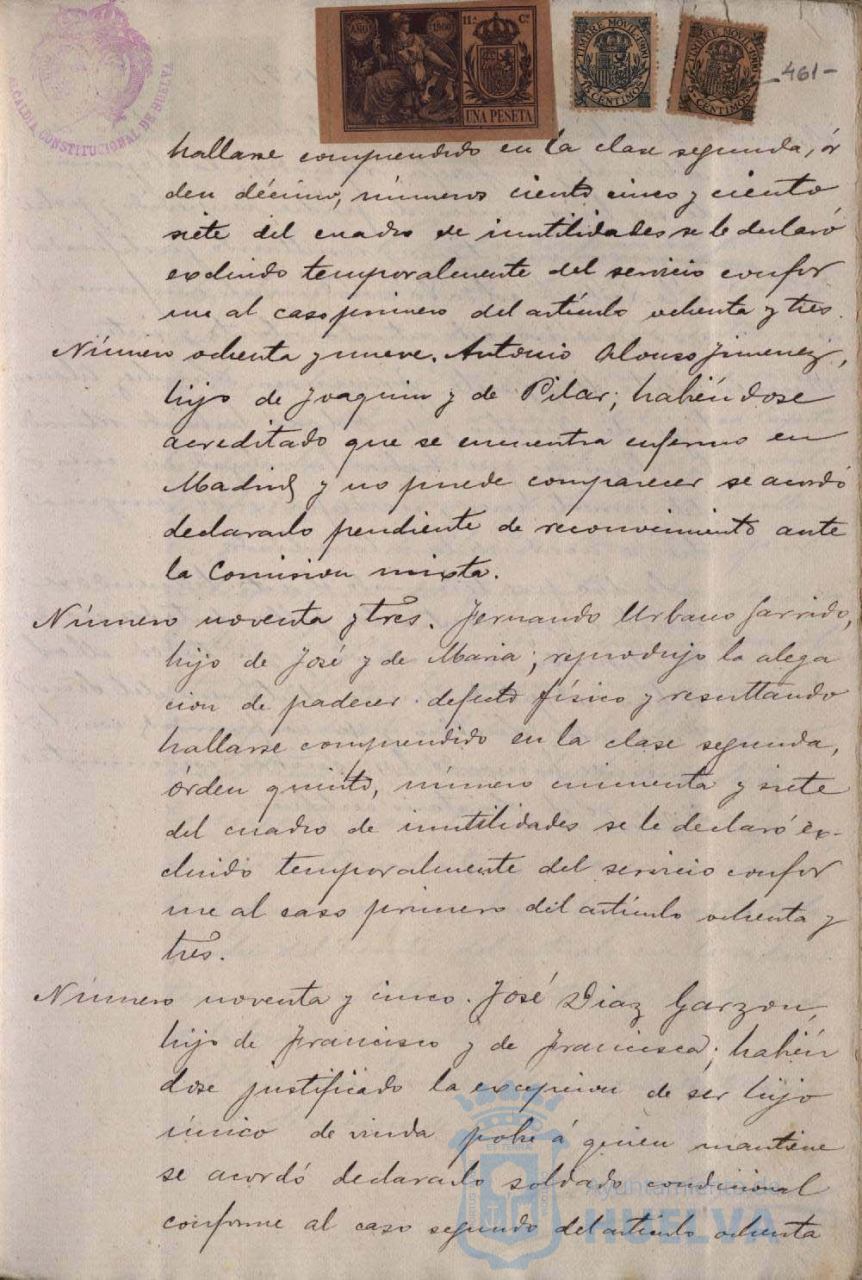 ALCALDIA CONSTITUCIONAL DE HUELVA
AÑO 1900 11.ª Cª.
UNA PESETA
TIMBRE MOVIL 1900
5 CENTIMOS
TIMBRE MOVIL 1900
5 CENTIMOS
-461-
hallarse comprendido en la clase segunda, ór
den décimo, números ciento cinco y ciento
siete del cuadro de inutilidades se le declaró
excluido temporalmente del servicio confor
me al caso primero del artículo ochenta y tres.
Número ochenta y nueve. Antonio Alonso Jimenez,
hijo de Joaquin y de Pilar; habiéndose
acreditado que se encuentra enfermo en
Madrid y no puede comparecer se acordó
declararlo pendiente de reconocimiento ante
la Comision mixta.
Número noventa y tres. Fernando Urbano Garrido,
hijo de José y de Maria; reprodujo la alega
cion de padecer defecto físico y resultando
hallarse comprendido en la clase segunda,
órden quinto, número cincuenta y siete
del cuadro de inutilidades se le declaró ex-
cluido temporalmente del servicio confor
me al caso primero del artículo ochenta y
tres.
Número noventa y cinco. José Diaz Garzon,
hijo de Francisco y de Francisca; habién
dose justificado la excepcion de ser hijo
único de viuda pobre á quien mantiene
se acordó declararlo soldado condicional
conforme al caso segundo del artículo ochenta
Ayuntamiento de
HUELVA